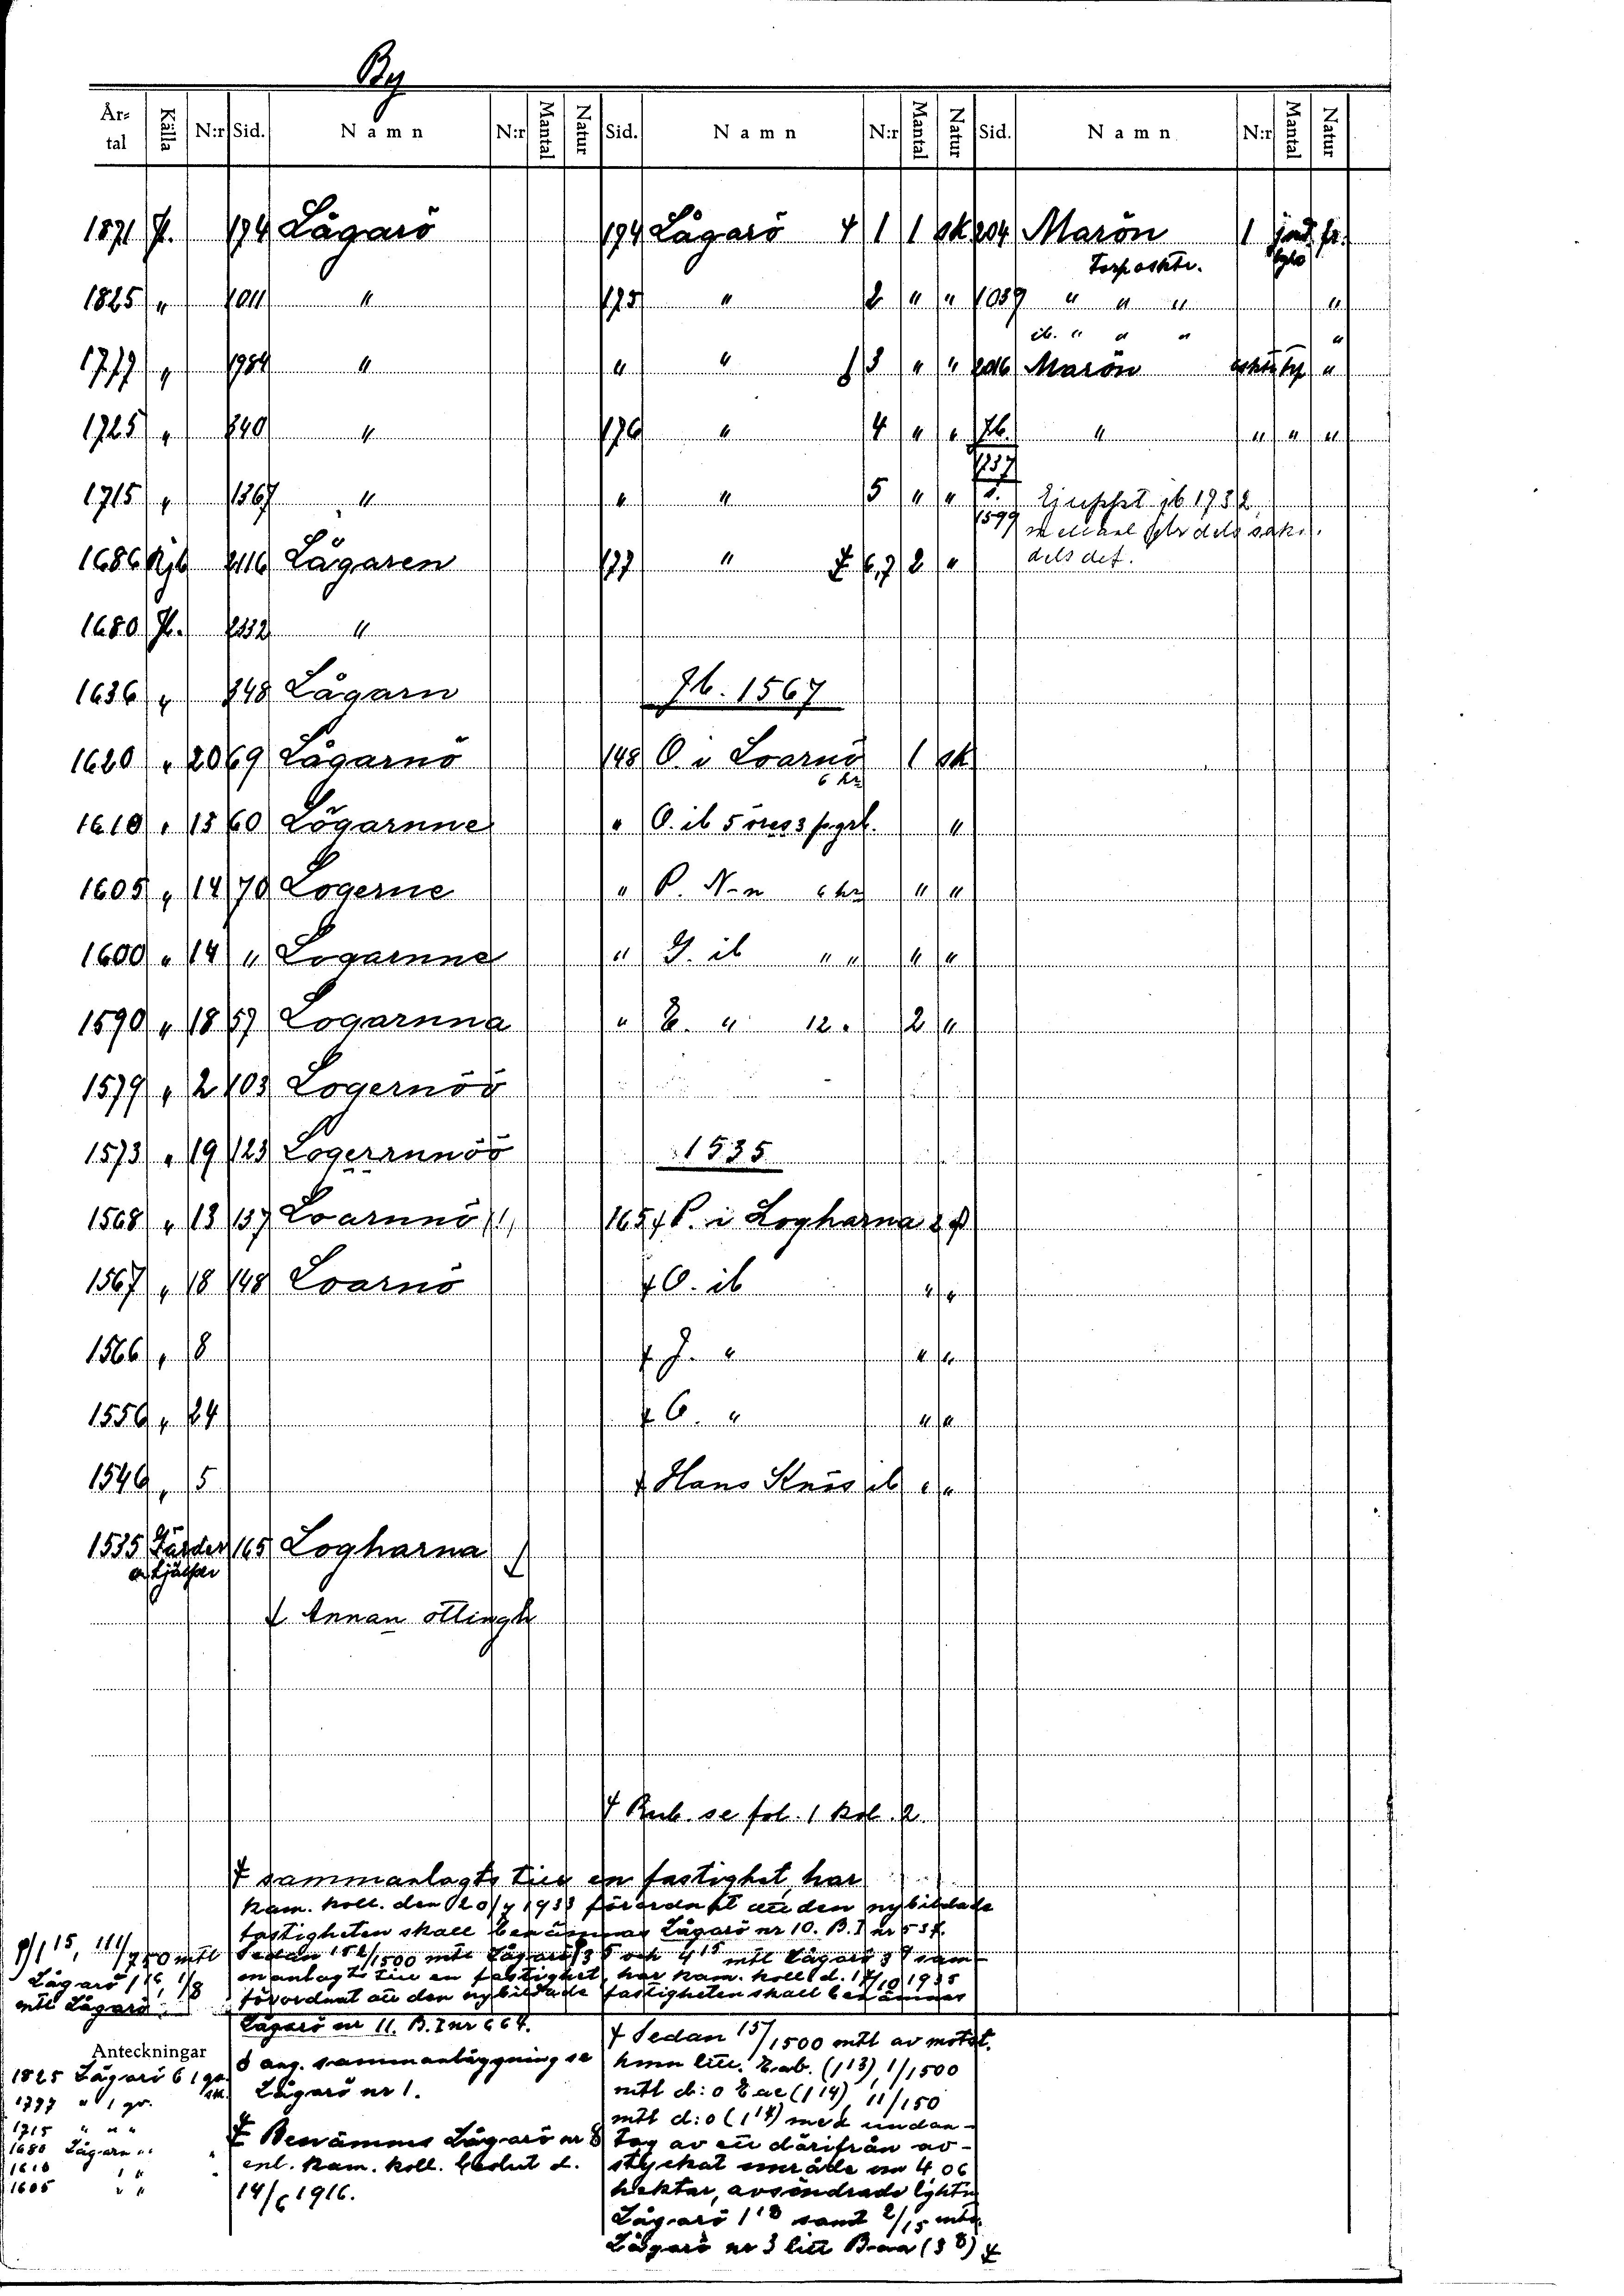 By
År-tal Källa N:r Sid. Namn N:r Mantal Natur Sid. Namn N:r Mantal Natur Sid. Namn N:r Mantal Natur
1871 Jb. 174 Lågarö 174 Lågarö 1 1 sk 204 Marön 1 fr.
Torpoktr.
1825 " 1011 " 175 " 2 " " 1039 " " " "
ib. " " " "
1777 " 1984 " " " 3 " " 2016 Marön "
1725 " 840 " 176 " 4 " " Jb. " " " "
1237
1715 " 1367 " " " 5 " " Ej uppt jb 1932
1599 dels sakr.
1686 Rjb 2116 Lågaren 177 " 6,7 2 " dels def.
1680 Jb. 2332 "
1636 " 348 Lågarn Jb. 1567
1620 " 20 69 Lågarnö 148 O. i Loarnö 1 sk
6 hr
1610 " 13 60 Lögarnne " O. ib 5 öres 3 pgrl. "
1605 " 14 70 Logerne " P. N-n 6 hr " "
1600 " 14 " Logarnne " J. ib " " " "
1590 " 18 57 Logarnna " E. " 12 " 2 "
1579 " 2 103 Logernöö
1573 " 19 123 Logerrnnöö 1535
1568 " 13 137 Loarnnö (!) 165 P. i Logharna
1567 " 18 148 Loarnö O. ib " "
1566 " 8 J. " " "
1556 " 24 O. " " "
1546 " 5 Hans Knös ib " "
1535 Gärder 165 Logharna
o. hjälper
Annan ottingh
Rub. se fol. 1 kol. 2.
sammanlagts till en fastighet, har
Kam. koll. den 20/4 1933 förordnat att den nybildade
fastigheten skall benämnas Lågarö nr 10. B.I nr 537.
1 15, 111/750 mtl Sedan 152/1500 mtl Lågarö 3 5 och 4 15 mtl Lågarö 3 9 sam-
Lågarö 1 16, 1/8 manlagts till en fastighet, har Kam. koll. d. 17/10 1935
mtl Lågarö förordnat att den nybildade fastigheten skall benämnas
Lågarö nr 11. B.I nr 664.
Anteckningar
1825 Lågarö 6 1 gr.
1777 " 1 gr.
1715 " " "
1680 Lågarn "
1610 " "
1605 " "
ang. sammanläggning se
Lågarö nr 1.
Benämnes Lågarö nr 8
enl. Kam. koll. beslut d.
14/6 1916.
Sedan 15/1500 mtl av motst.
hmn litt. Eab. (1 13), 1/1500
mtl d:o Eac (1 14), 11/150
mtl d:o (1 17) med undan-
tag av ett därifrån av-
styckat område om 4,06
hektar, avsöndrade lghtn
Lågarö 1 18 samt 2/15 mtl.
Lågarö nr 3 litt Baa (3 8)